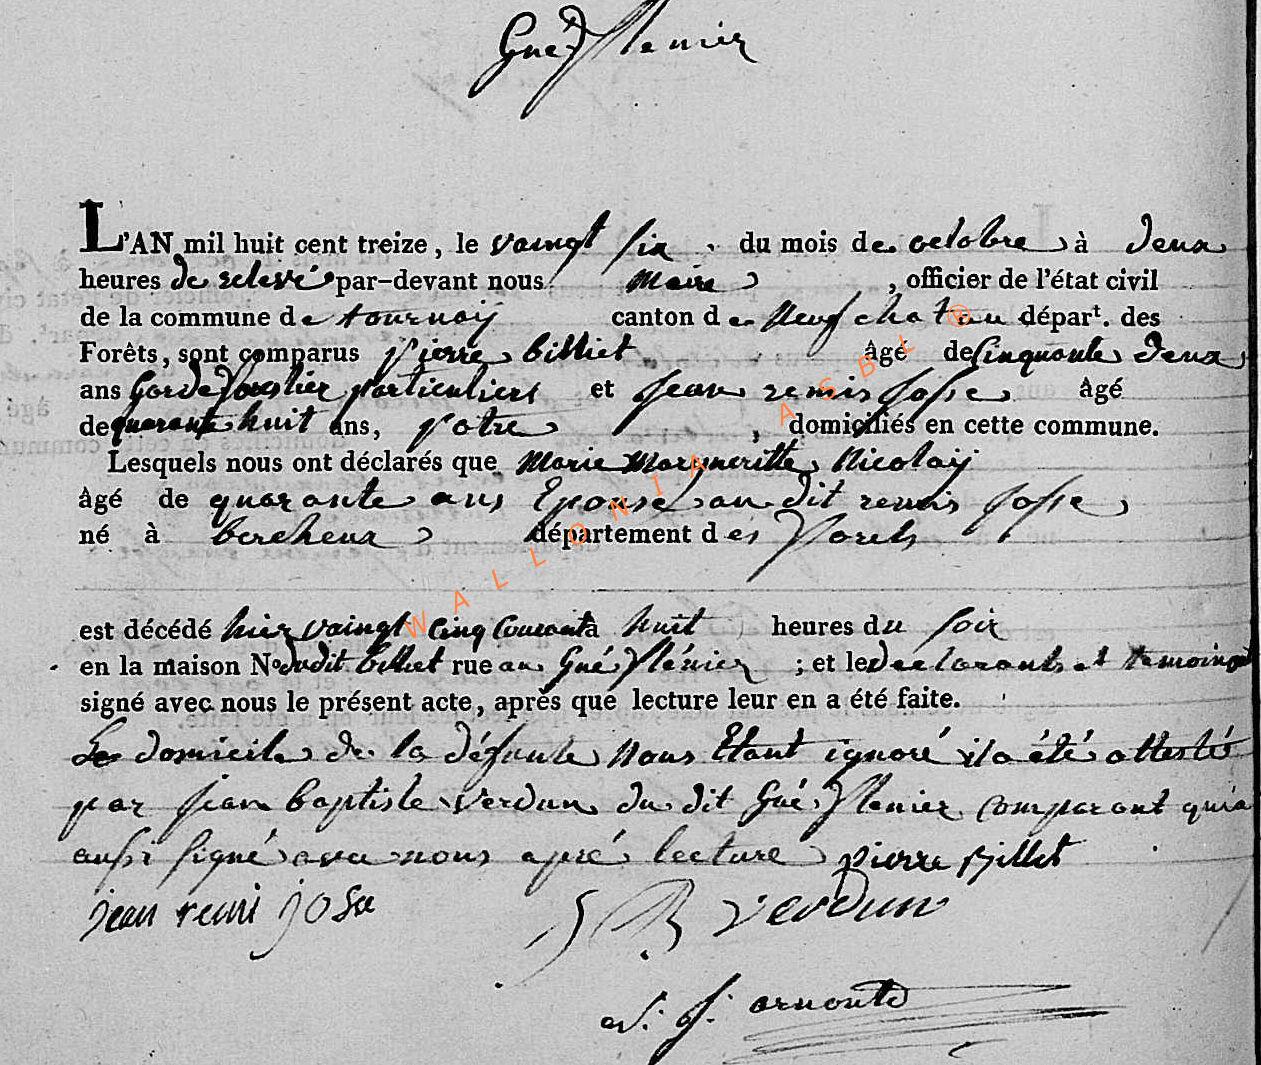 Gué Stenier
L'AN mil huit cent treize, le vaingt six du mois de octobre à deux
heures de relevé par-devant nous Maire, officier de l'état civil
de la commune de tournay canton de Neufchateau départ. des
Forêts, sont comparus pierre billiet âgé de Cinquante deux
ans Garde forestier particuliers et jean remis josse âgé
de quarante huit ans, patre, domiciliés en cette commune.
Lesquels nous ont déclarés que Marie Margueritte Nicolaÿ
âgé de quarante ans Epouse au dit remis josse
né à bercheux département des forets
est décédé hier vaingt cinq Courant à huit heures du soir
en la maison No dudit billiet rue au Gué Sténier ; et les declarants et temoin ont
signé avec nous le présent acte, après que lecture leur en a été faite.
Le domicile de la défunte nous Etant ignoré il a été attesté
par jean baptiste verdun du dit Gué Stenier comparant qui a
aussi signé avec nous apré lecture pierre billet
jean remi josse
J B verdun
arnould
WALLONIA ASBL ®